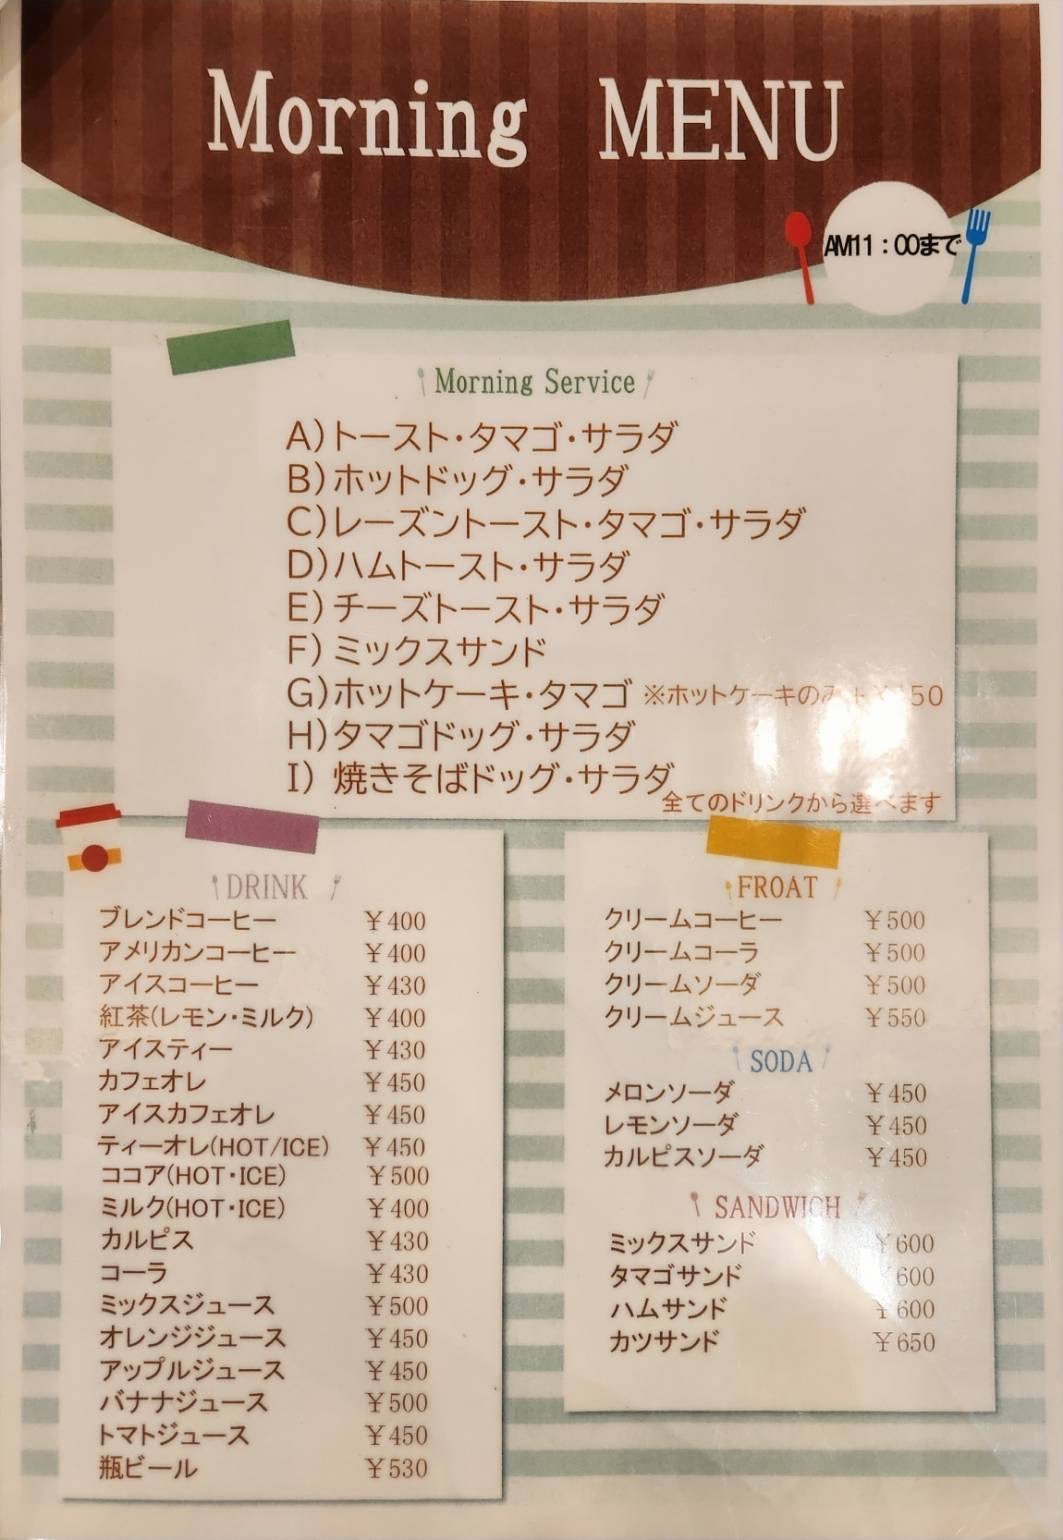 Morning MENU
AM11:00まで
Morning Service
A)トースト・タマゴ・サラダ
B)ホットドッグ・サラダ
C)レーズントースト・タマゴ・サラダ
D)ハムトースト・サラダ
E)チーズトースト・サラダ
F)ミックスサンド
G)ホットケーキ・タマゴ ※ホットケーキのみ
H)タマゴドッグ・サラダ
I) 焼きそばドッグ・サラダ
全てのドリンクから選べます
DRINK
ブレンドコーヒー ￥400
アメリカンコーヒー ￥400
アイスコーヒー ￥430
紅茶(レモン・ミルク) ￥400
アイスティー ￥430
カフェオレ ￥450
アイスカフェオレ ￥450
ティーオレ(HOT/ICE) ￥450
ココア(HOT・ICE) ￥500
ミルク(HOT・ICE) ￥400
カルピス ￥430
コーラ ￥430
ミックスジュース ￥500
オレンジジュース ￥450
アップルジュース ￥450
バナナジュース ￥500
トマトジュース ￥450
瓶ビール ￥530
FROAT
クリームコーヒー ￥500
クリームコーラ ￥500
クリームソーダ ￥500
クリームジュース ￥550
SODA
メロンソーダ ￥450
レモンソーダ ￥450
カルピスソーダ ￥450
SANDWICH
ミックスサンド ￥600
タマゴサンド ￥600
ハムサンド ￥600
カツサンド ￥650